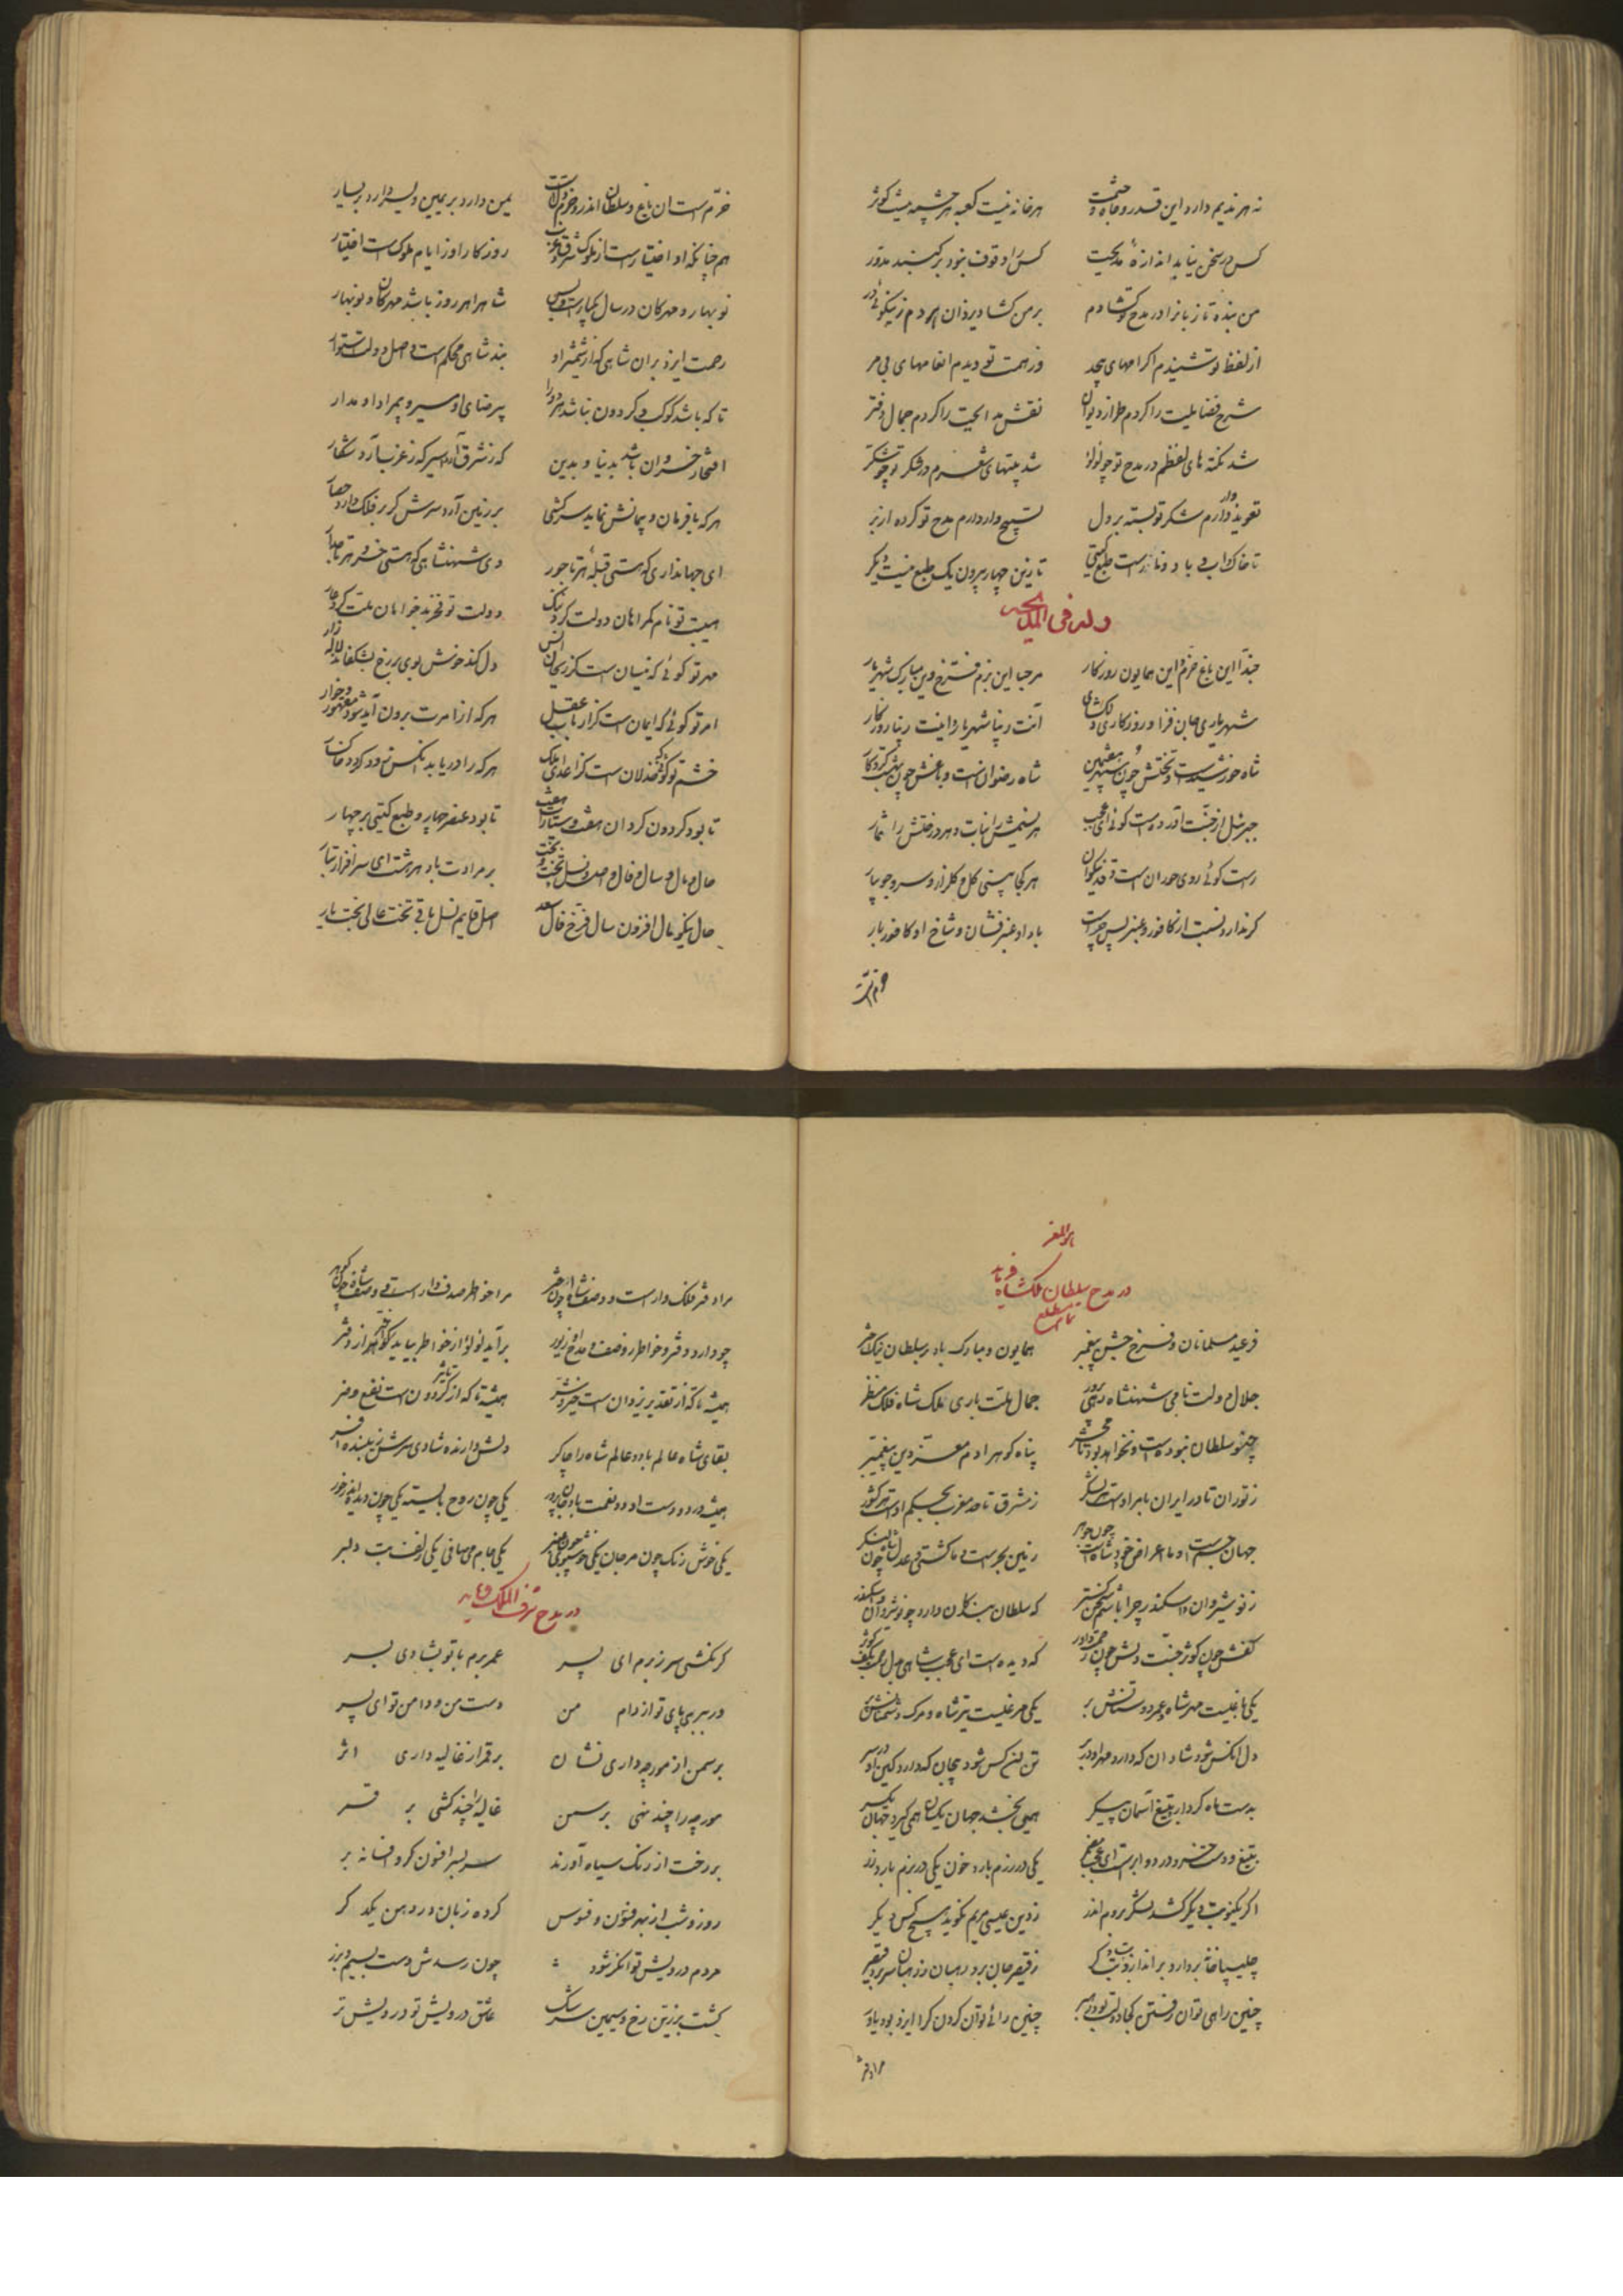 نه هر ندیم دارد این قدر و جاه و حشمت هر خانه نیست کعبه هر چشمه نیست کوثر
کس در سخن نیابد اندازهٔ مدیحت کس را وقوف نبود بر گنبد مدور
من بنده تا زبانرا در مدح تو گشادم بر من گشاد یزدان هر دم ز نیکوئی در
از لفظ تو شنیدم اکرامهای بیحد وز همت تو دیدم انعامهای بی مر
شرح فضایلت را کردم طراز دیوان نقش مدایحت را کردم جمال دفتر
شد نکته های لفظم در مدح تو چو لولؤ شد بیتهای شعرم در شکر تو چو شکر
تعویذ وار دارم شکر تو بسته بر دل تسبیح وار دارم مدح تو کرده از بر
تا خاک و آب و باد و نارست طبع گیتی تا زین چهار بیرون یک طبع نیست دیگر
وله فی المدیحه
حبذا این باغ خرم و این همایون روزگار مرحبا این بزم فرخ وین مبارک شهریار
شهریاری جان فزا و روزگاری دلگشای آنت زیبا شهریار و اینت زیبا روزگار
شاه خورشیدست و تختش چون سپهر هشتمین شاه رضوان است و باغش چون بهشت کردگار
جبرئیل از جنت آورده است گوئی ای عجب هر نسیمش را نبات و هر درختش را ثمار
راست گوئی روی حوران است و قد نیکوان هر کجا بینی گل و گلزار و سرو جویبار
گر ندارد نسبت از کافور و عنبر پس چراست باد او عنبر فشان و شاخ او کافور بار
خرم است
خرم است آن باغ و سلطان اندرو خرم ولایت یمین دارد بر یمین و یسر دارد بر یسار
هم چنانکه او اختیارست از ملوک شرق و غرب روزگار او ز ایام ملوک است اختیار
نوبهار و مهرکان در سال یکبارست و بس شاه را هر روز باشد مهرکان و نوبهار
رحمت ایزد بر آن شاهی که از شمشیر او بند شاهی محکم است و اصل دولت استوار
تا که باشد کوکب و گردون نباشد هر دو را بی رضای او مسیر و بی مراد او مدار
افتخار خسروان باشد بدنیا و بدین که ز شرق آرد اسیر که ز غرب آرد شکار
هر که با فرمان و پیمانش نماید سرکشی بر زمین آرد سرش گر بر فلک دارد حصار
ای جهانداری که هستی قبلهٔ هر تاجور وی شهنشاهی که هستی خسرو هر تاجدار
هیبت تو نام گمراهان دولت کرد ننگ دولت تو فخر بدخواهان ملت کرد عار
مهر تو گوئی که نیسان است کز ریحان انس دل کند خوش بوی بر رخ بشکفاند لاله زار
امر تو گوئی که ایمان است کز ارباب عقل هر که از امرت برون آید شود مقهور و خوار
خشم تو گوئی که خذلان است کز اعدای ملک هر که را دریابد آنکس زود گردد خاکسار
تا بود گردون گردان هفت و سیارات هفت تا بود عنصر چهار و طبع گیتی بر چهار
حال و مال و سال و فال و اصل و نسل و تخت و بخت بر مرادت باد هر هشت ای سرافراز تبار
حال نیکو مال افزون سال فرخ فال سعد اصل قایم نسل باقی تخت عالی بخت یار
هو المعز
در مدح سلطان ملکشاه فرماید
تا مطلع
ز عید مسلمانان و فرخ جشن پیغمبر همایون و مبارک باد بر سلطان نیک اختر
جلال دولت نامی شهنشاه رهی پرور جمال ملت باری ملک شاه فلک منظر
چنو سلطان نبوده است و نخواهد بود تا محشر پناه گوهر آدم معز دین پیغمبر
ز توران تا در ایران بامر اوست هر لشکر ز مشرق تا حد مغرب بحکم اوست هر کشور
جهان جسم است او با اعراض خود شاه است چون جوهر زمین بحر است و ما کشتی و عدل شاه چون لنگر
ز نوشیروان و اسکندر چرا باشم سخن گستر که سلطان بندگان دارد چو نوشروان و اسکندر
کفش چون کوثر جنت دلش چون رحمت داور که دیده است ای عجب شاهی بدل رحمت بکف کوثر
یکی باغیست مهر شاه و عمر دوستانش بر یکی مرغیست تیر شاه و مرگ دشمنانش پر
دل آنکس شود شادان که دارد مهر او در بر تن آن کس شود بیجان که دارد کین او در سر
بدست ماه کردار و بتیغ آسمان پیکر همی بخشد جهان یکسان همی گیرد جهان یکسر
بتیغ و دست خسرو در دو ابر است ای عجب مضمر یکی در رزم بارد خون یکی در بزم بارد زر
اگر یکنوبت دیگر کشد لشکر بروم اندر ز دین عیسی مریم نگوید هیچ کس دیگر
چلیپا خانه بردارد براندازد بت و بتگر ز قیصر جان برد رهبان ز رهبان سر برد قیصر
چنین راهی توان رفتن کجا دولت بود رهبر چنین رائی توان کردن کرا ایزد بود یاور
مرا دفتر
مرا دفتر فلک وار است و وصف شاه چون اختر مرا خاطر صدف وار است و وصف شاه چون گوهر
چو دارد دفتر و خاطر ز وصف و مدح او زیور برآید لولؤ از خاطر بیاید کوکب از دفتر
همیشه تا که از تقدیر یزدان است خیر و شر همیشه تا که از تاثیر گردون است نفع و ضر
بقای شاه عالم باد و عالم شاه را چاکر دلش دارنده شادی سرش زیبنده افسر
همیشه در دو دست او دو نعمت باد جان پرور یکی چون روح بایسته یکی چون دیده اندر خور
یکی خوش رنگ چون مرجان یکی خوشبوی چون عنبر یکی جام می صافی یکی زلف بت دلبر
در مدح شرف الملک فرماید
گر نکشی سر ز برم ای پسر عمر برم با تو بشادی بسر
ور ببری پای تو از دام من دست من و دامن تو ای پسر
بر سمن از مورچه داری نشان بر قمر از غالیه داری اثر
مورچه را چند نهی بر سمن غالیه را چند کشی بر قمر
بر رخت از زنگ سپاه آورند سر بسر افسون گر و افسانه بر
روز و شب از بهر فنون و فسوس کرده زبان در دهن یکدگر
مردم درویش توانگر شود چون رسدش دست بسیم و بزر
گشت بزرین رخ و سیمین سرشک عاشق درویش تو درویش تر